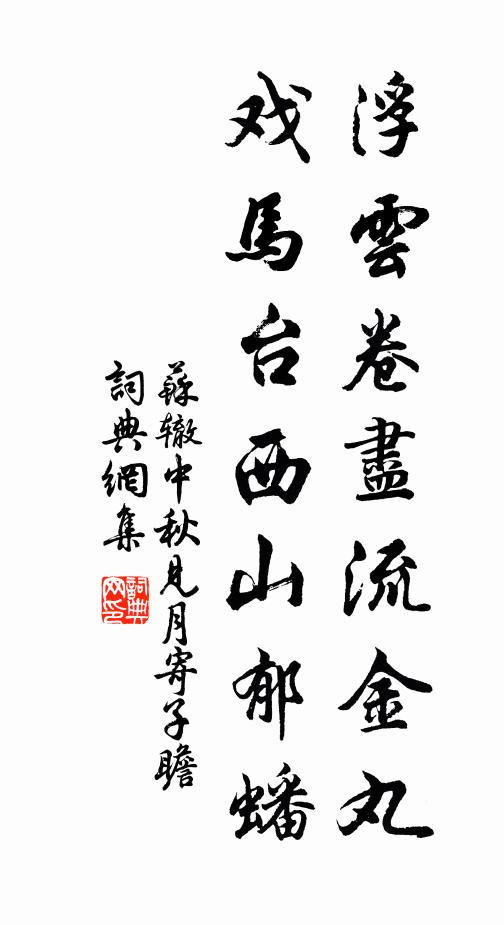 浮雲卷盡流金丸
戏馬台西山郁蟠
蘇辙中秋見月寄子瞻
詞典網集
詞典
网印